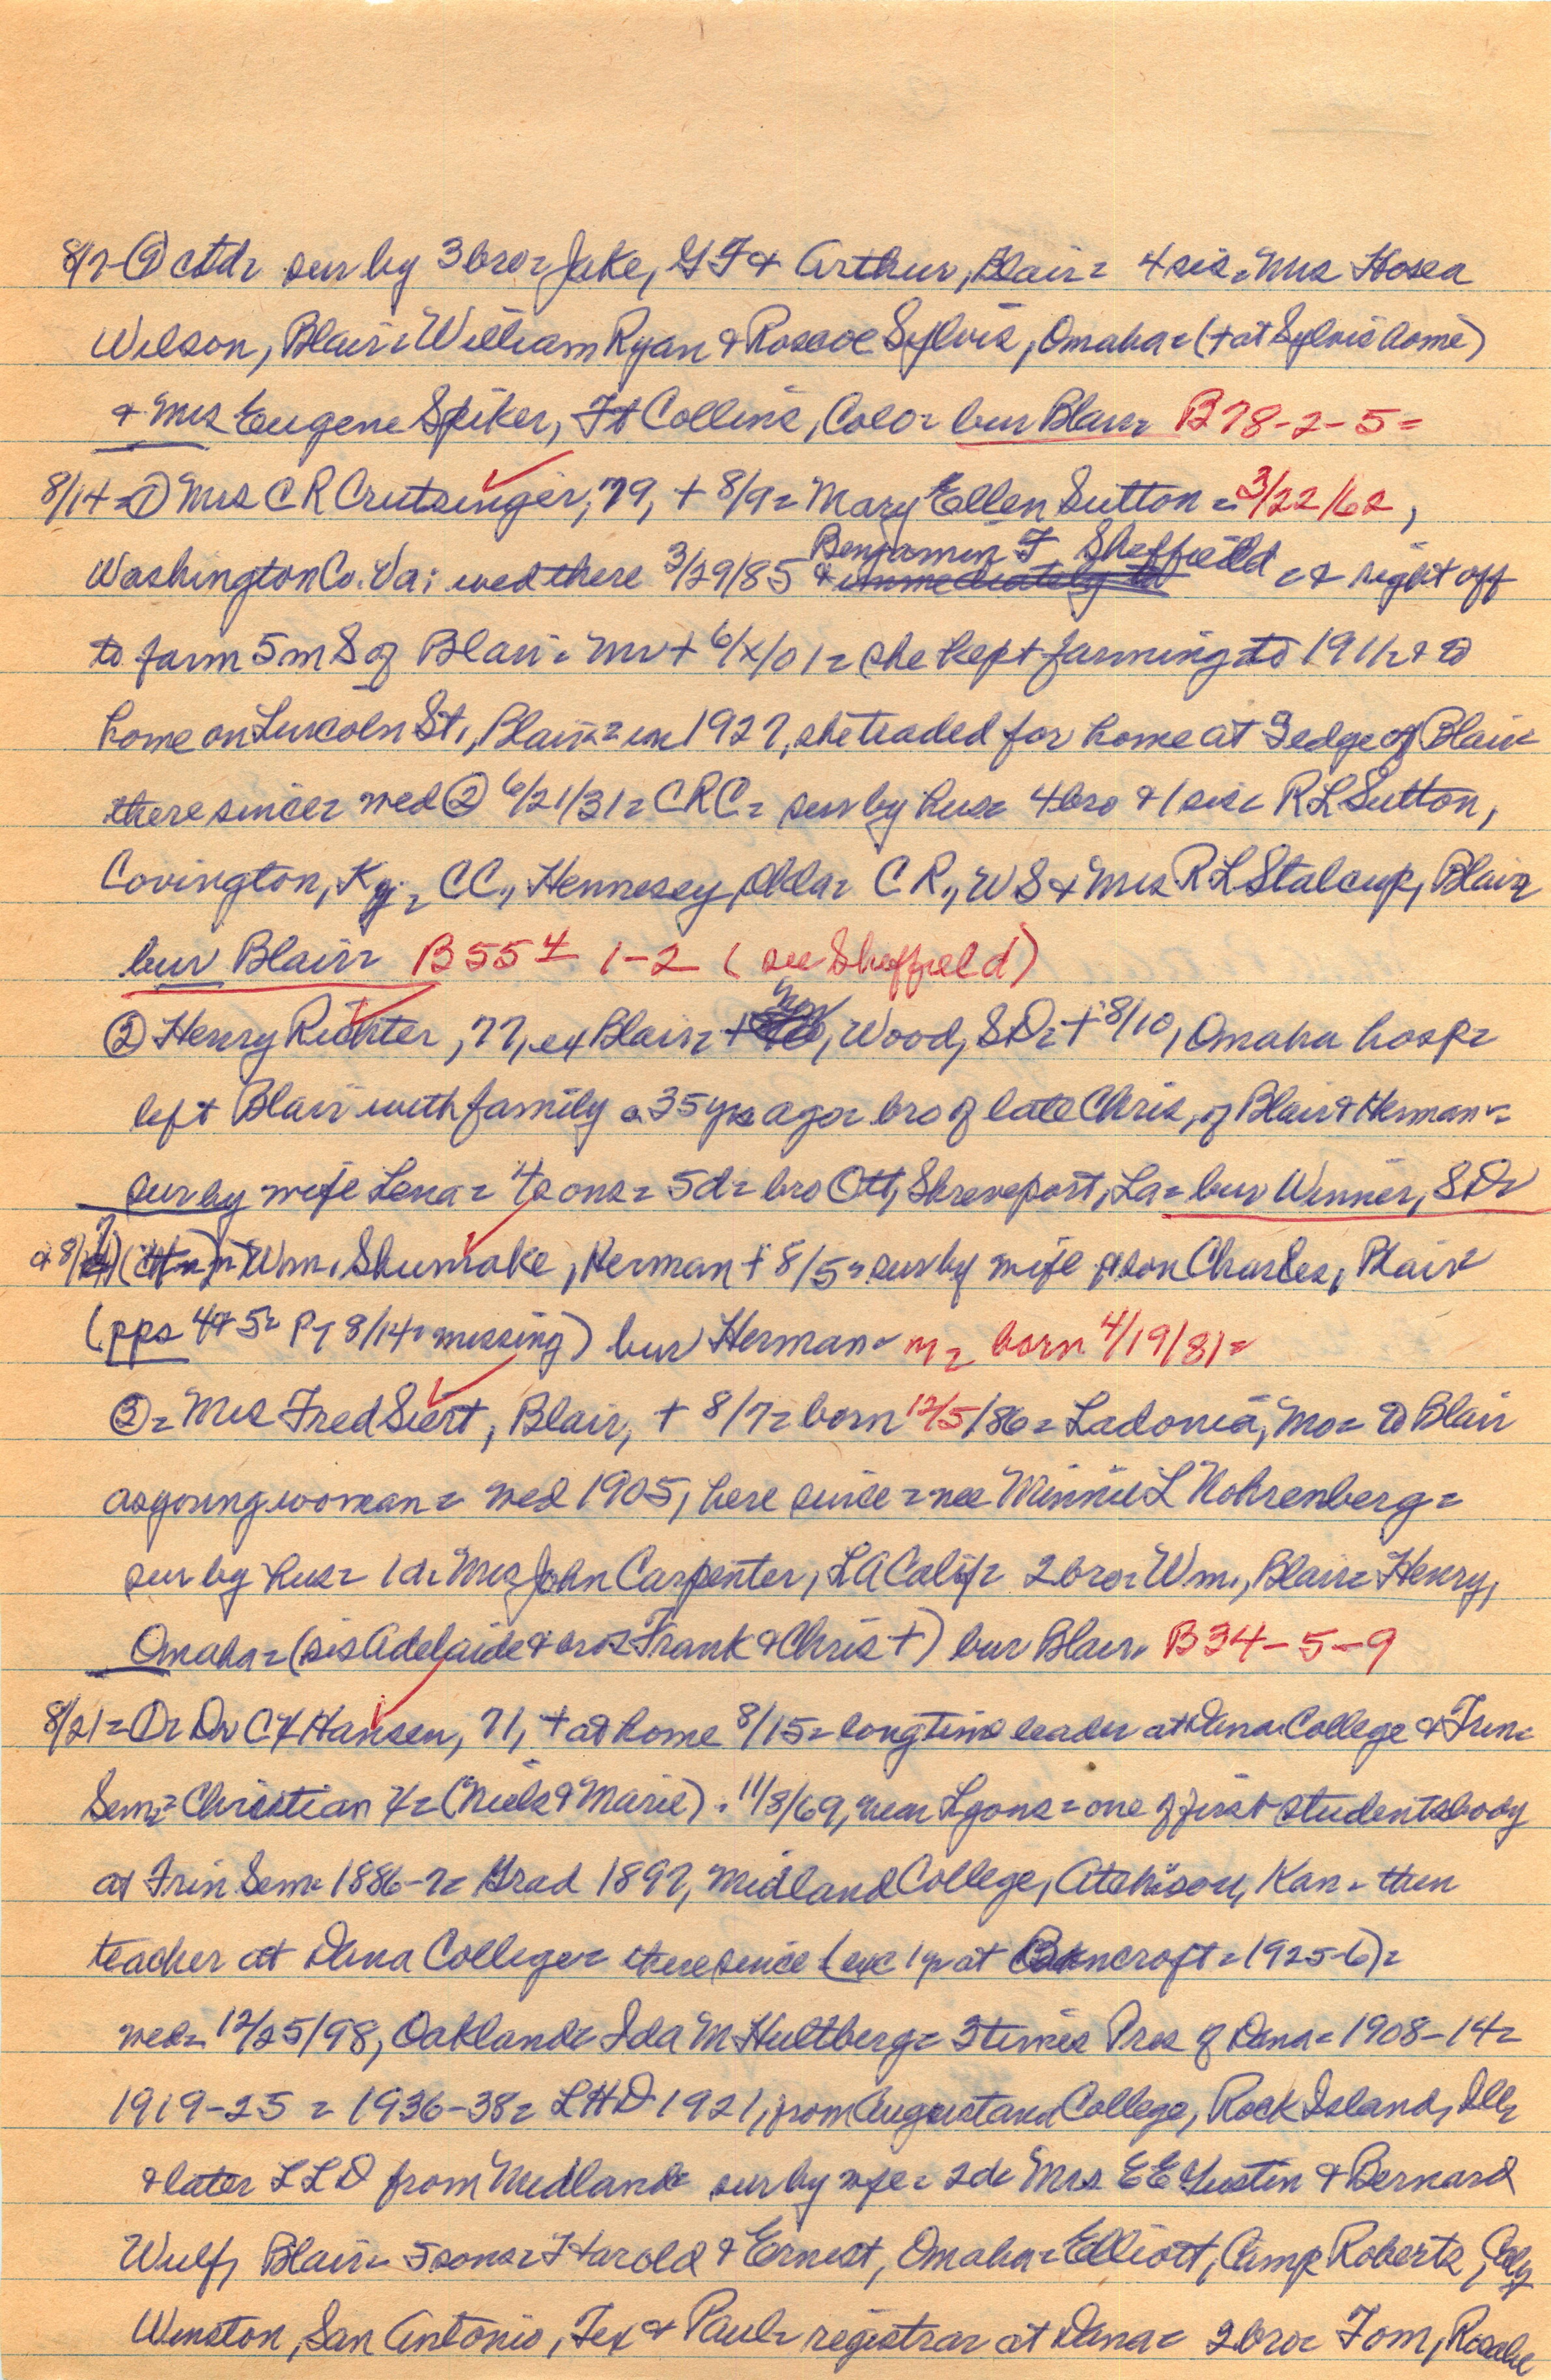 8/7-① ctd= sur by 3 bro= Jake, G F & Arthur, Blair= 4 sis= Mrs Hosea
Wilson, Blair= William Ryan & Roscoe Sylvis, Omaha= (+ at Sylvis home)
& Mrs Eugene Spiker, Ft Collins, Colo= bur Blair= B78-2-5=
8/14=① Mrs C R Crutsinger, 79, + 8/9= Mary Ellen Sutton= 3/22/62,
Washington Co. Va; wed there 3/29/85 Benjamin F Sheffield & immediately to = & right off
to farm 5 m S of Blair= Mr + 6/x/01= she kept farming to 1911= & to
home on Lincoln St., Blair= in 1927, she traded for home at S edge of Blair=
there since= wed ② 6/21/31= CRC= sur by hus= 4 bro & 1 sis= R L Sutton,
Covington, Ky=, CC., Hennesey, Okla= C R., W S & Mrs R L Stalcup, Blair=
bur Blair= B55 4 1-2 (see Sheffield)
② Henry Richter, 77, ex Blair= + now, Wood, SD= + 8/10, Omaha hosp=
left Blair with family a 35 yrs ago= bro of late Chris, of Blair & Herman=
sur by wife Lena= 4 sons= 5 d= bro Ott, Shreveport, La= bur Winner, SD=
& 8/7 Wm. Shumake, Herman + 8/5= sur by wife & son Charles, Blair=
(pps 4 & 5= P7 8/14= missing) bur Herman= m= born 4/19/81=
③= Mrs Fred Siert, Blair, + 8/7= born 12/5/86= Ladonia, Mo= to Blair
as young woman= wed 1905, here since= nee Minnie L Kohrenberg=
sur by hus= 1 d= Mrs John Carpenter, LA Calif= 2 bro= Wm., Blair= Henry,
Omaha= (sis Adelaide & bros Frank & Chris +) bur Blair= B34-5-9
8/21= Dr C X Hansen, 71, + at home 8/15= longtime leader at Dana College & Trin=
Sem= Christian X= (Niels & Marie). 11/8/69, near Lyons= one of first student body
at Trin Sem= 1886-7= Grad 1897, Midland College, Atchison, Kan= then
teacher at Dana College= there since (exc 1 yr at Bancroft= 1925-6)=
wed= 12/25/98, Oakland= Ida M Hultberg= 3 times Pres of Dana= 1908-14=
1919-25= 1936-38= LHD 1921, from Augustana College, Rock Island, Ill=
& later LLD from Midland= sur by wife= 2 d= Mrs E E Gustin & Bernard
Wulf, Blair= 5 sons= Harold & Ernest, Omaha= Elliott, Camp Roberts, Calif
Winston, San Antonio, Tex & Paul= registrar at Dana= 2 bro= Tom, Rosalie